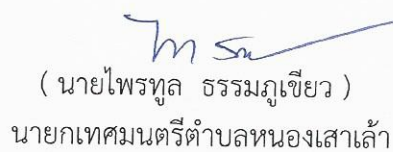 ( นายไพรทูล ธรรมภูเขียว )
นายกเทศมนตรีตำบลหนองเสาเล้า